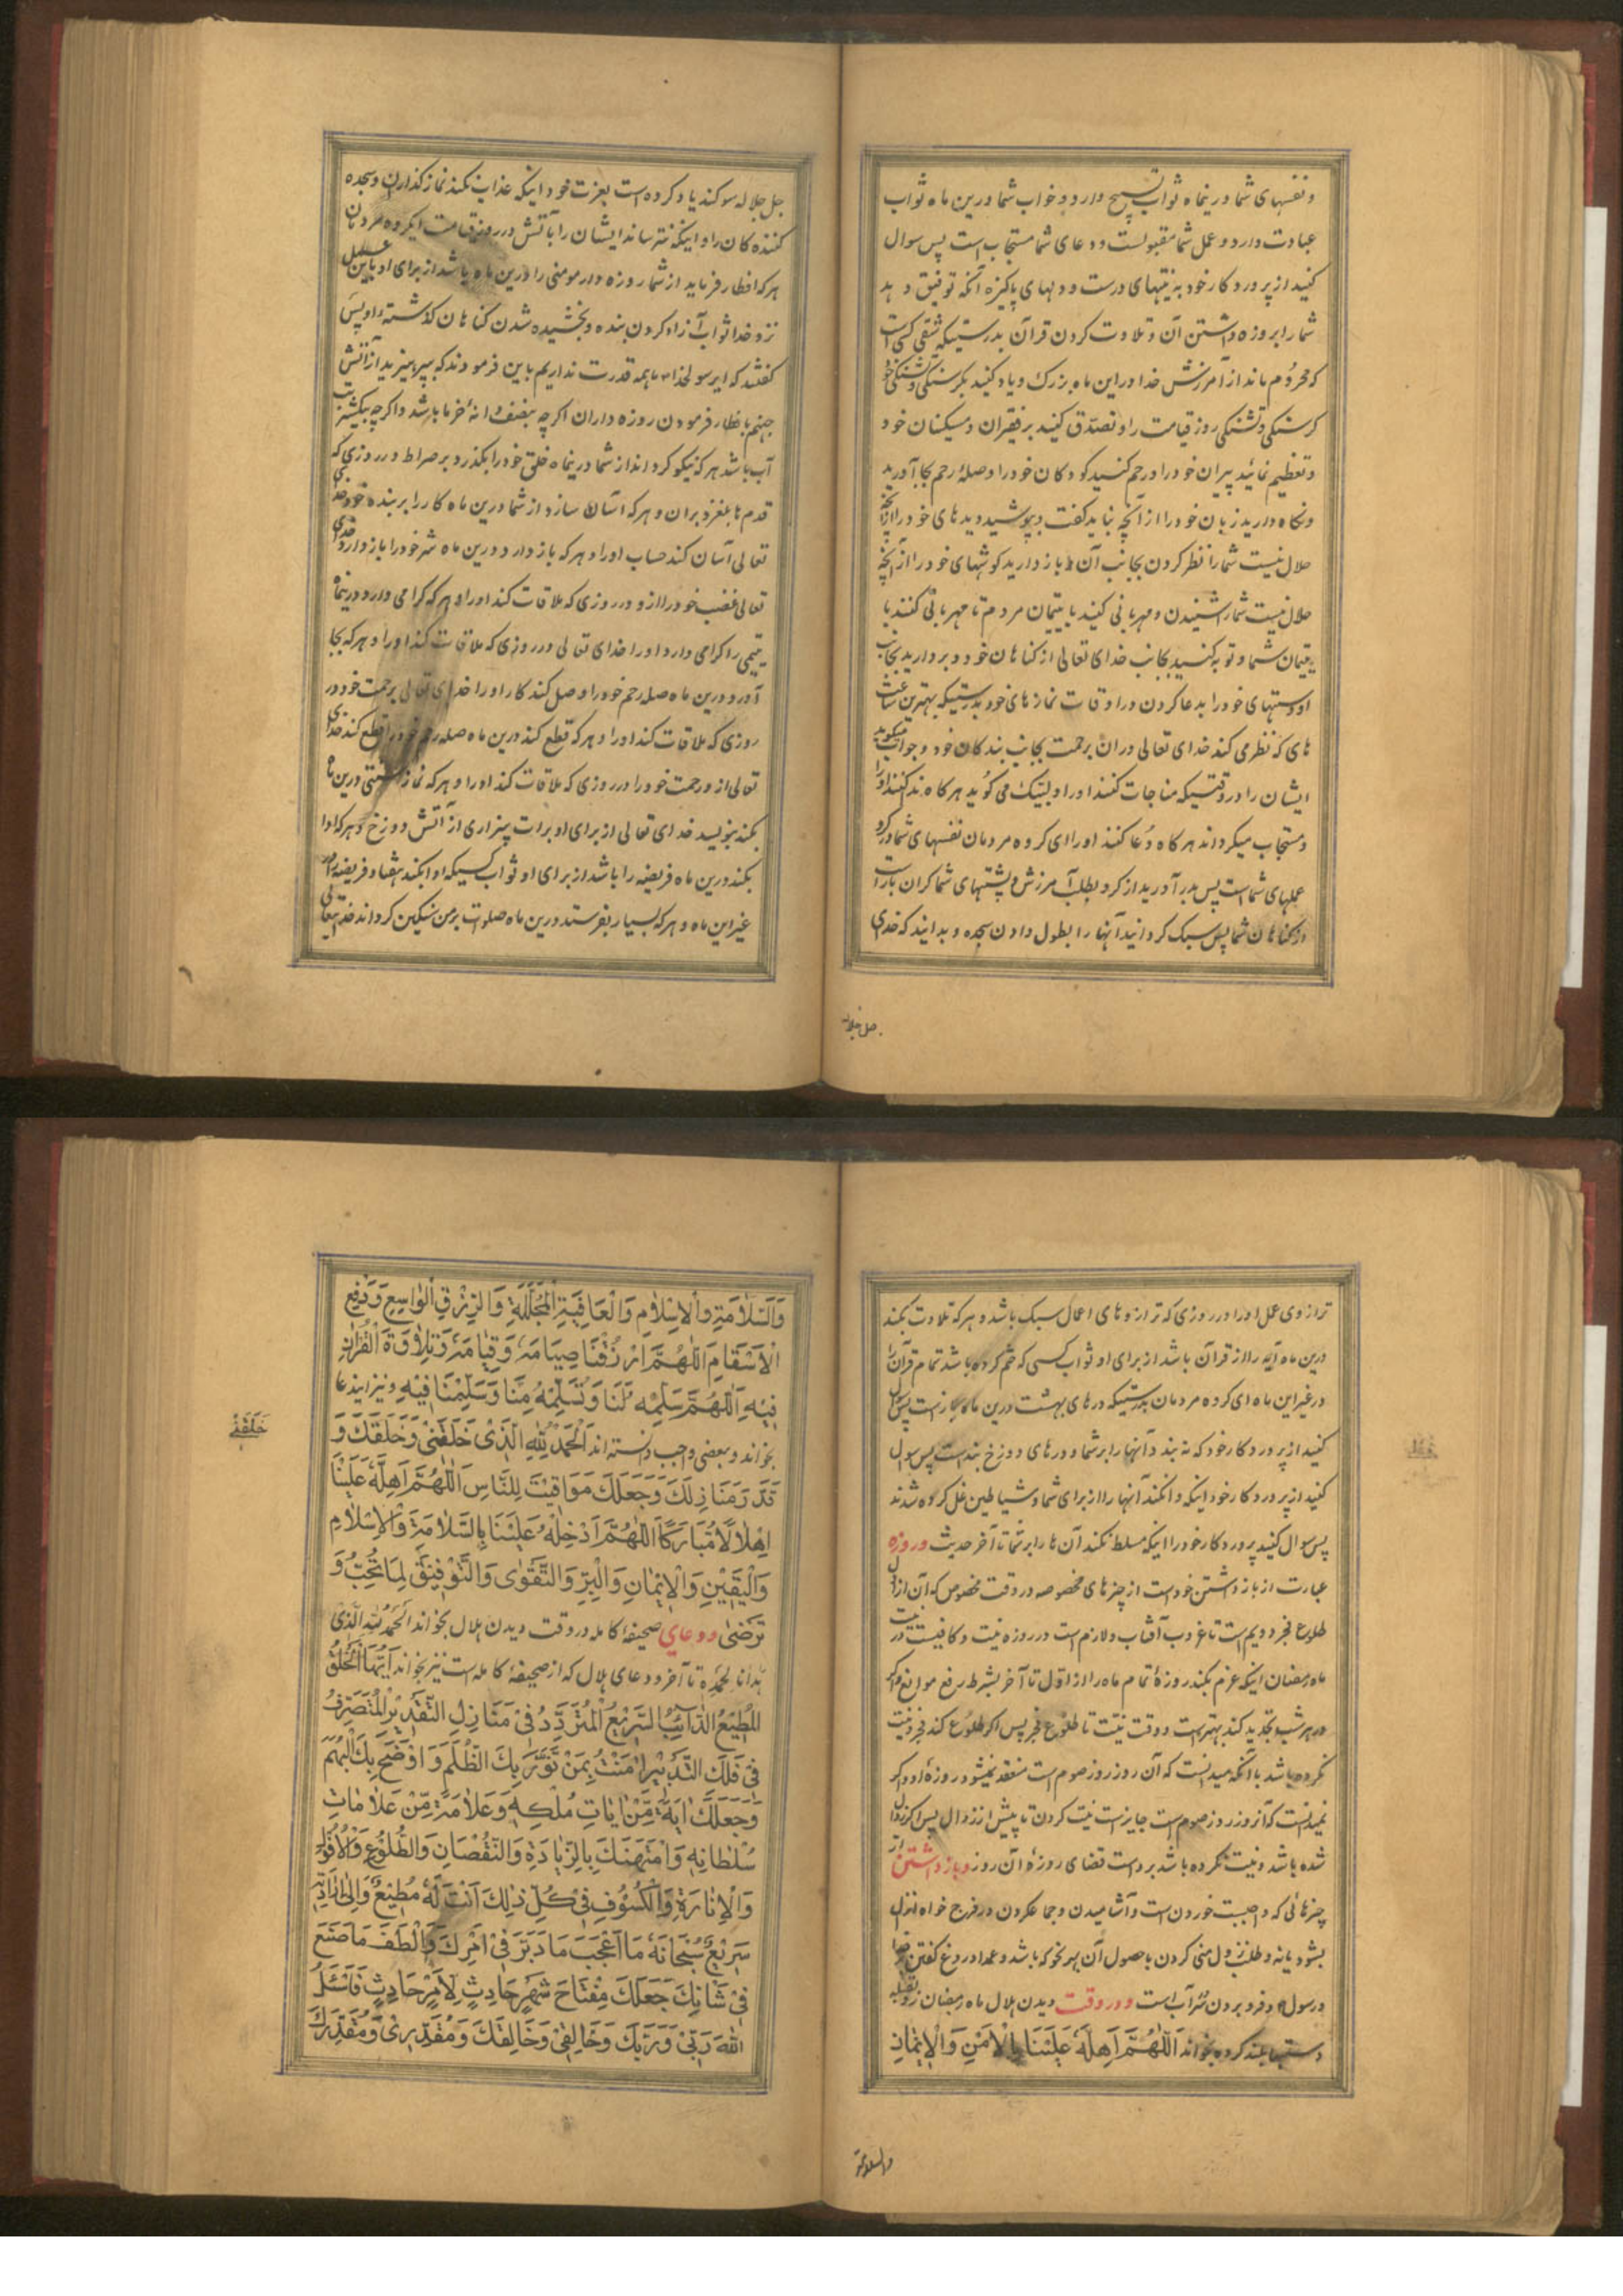 و نفسهای شما درینماه ثواب تسبیح دارد و خواب شما درین ماه ثواب
عبادت دارد و عمل شما مقبولست و دعای شما مستجاب است پس سوال
کنید از پروردکار خود به نیتهای درست و دلهای پاکیزه آنکه توفیق دهد
شما را بروزه داشتن آن و تلاوت کردن قرآن بدرستیکه شقی کسی است
که محروم ماند از آمرزش خدا در این ماه بزرک و یاد کنید بکرسنکی و تشنکی خود
کرسنکی و تشنکی روز قیامت را و تصدق کنید بر فقیران و مسکینان خود
و تعظیم نمائید پیران خود را و رحم کنید کودکان خود را و صلهٔ رحم بجا آورید
و نکاه دارید زبان خود را از آنچه نباید کفت و بپوشید دیدهای خود را از آنچه
حلال نیست شما را نظر کردن بجانب آن و باز دارید کوشهای خود را از آنچه
حلال نیست شما را شنیدن و مهربانی کنید با یتیمان مردم تا مهربانی کنند با
یتیمان شما و توبه کنید بجانب خدای تعالی از کناهان خود و بردارید بجانب
او دستهای خود را بدعا کردن در اوقات نمازهای خود بدرستیکه بهترین ساعت
های که نظر می کند خدای تعالی در ان برحمت بجانب بندکان خود و جواب میکوید
ایشان را در وقتیکه مناجات کنند او را و لبیک می کوید هرکاه ندا کنند او را
و مستجاب میکرداند هرکاه دعا کنند او را ای کروه مردمان نفسهای شما در کرو
عملهای شما است پس بدر آورید از کرو بطلب آمرزش و پشتهای شما کران بار است
از کناهان شما پس سبک کردانید آنها را بطول دادن سجده و بدانید که خدای
جل جلاله
جل جلاله سوکند یاد کرده است بعزت خود اینکه عذاب نکند نمازکذاران و سجده
کننده کان را و اینکه نترساند ایشان را بآتش در روز قیامت ایکروه مردمان
هر که افطار فرماید از شما روزه دار مومنی را درین ماه باشد از برای او باین عمل
نزد خدا ثواب آزاد کردن بنده و بخشیده شدن کناهان کذشته او پس
کفتند که ایرسولخدا ما همه قدرت نداریم باین فرمودند که بپرهیزید از آتش
جهنم بافطار فرمودن روزه داران اکرچه بنصف دانهٔ خرما باشد و اکرچه بیکشربت
آب باشد هر که نیکو کرداند از شما درینماه خلق خود را بکذرد بر صراط در روزی که
قدمها بلغزد بران و هر که آسان سازد از شما درین ماه کار را بر بنده خود خدای
تعالی آسان کند حساب او را و هر که باز دارد درین ماه شر خود را باز دارد خدای
تعالی غضب خود را از او در روزی که ملاقات کند او را و هر که کرامی دارد درینماه
یتیمی را کرامی دارد او را خدای تعالی در روزی که ملاقات کند او را و هر که بجا
آورد درین ماه صله رحم خود را وصل کند او را خدای تعالی برحمت خود در
روزی که ملاقات کند او را و هر که قطع کند درین ماه صله رحم خود را قطع کند خدای
تعالی ازو رحمت خود را در روزی که ملاقات کند او را و هر که نماز سنتی درین ماه
بکند بنویسد خدای تعالی از برای او برات بیزاری از آتش دوزخ و هر که ادا
بکند درین ماه فریضه را باشد از برای او ثواب کسیکه ادا بکند هفتاد فریضه را در
غیر این ماه و هر که بسیار بفرستد درین ماه صلوات بر من سنکین کرداند خدایتعالی
ترازوی عمل او را در روزی که ترازوهای اعمال سبک باشد و هر که تلاوت بکند
درین ماه آیه را از قرآن باشد از برای او ثواب کسی که ختم کرده باشد تمام قرآن را
در غیر این ماه ای کروه مردمان بدرستیکه درهای بهشت درین ماه باز است پس سوال
کنید از پروردکار خود که نه بندد آنها را بر شما و درهای دوزخ بند است پس سوال
کنید از پروردکار خود اینکه وانکند آنها را از برای شما و شیاطین غل کرده شدند
پس سوال کنید پروردکار خود را اینکه مسلط نکند آن ها را بر شما تا آخر حدیث و روزه
عبارت از باز داشتن خود است از چیزهای مخصوصه در وقت مخصوص که آن از اول
طلوع فجر دویم است تا غروب آفتاب و لازم است در روزه نیت و کافیست در
ماه رمضان اینکه عزم بکند روزهٔ تمام ماه را از اول تا آخر بشرط رفع موانع و اکر
در هر شب تجدید کند بهتر است و وقت نیت تا طلوع فجر پس اکر طلوع کند فجر و نیت
نکرده باشد با آنکه میدانست که آن روز روز صوم است منعقد نمیشود روزهٔ او و اکر
نمیدانست که آنروز روز صوم است جایز است نیت کردن تا پیش از زوال پس اکر زوال
شده باشد و نیت نکرده باشد بر او است قضای روزهٔ آن روز و باز داشتن از
چیزهائی که واجبست خوردن است و آشامیدن و جماع کردن در فرج خواه انزال
بشود یا نه و طلب نزول منی کردن با حصول آن بهر نحو که باشد و عمدا دروغ کفتن بر خدا
و رسول و فرو بردن سر آب است و در وقت دیدن هلال ماه رمضان رو بقبله
دستها بلند کرده بخواند اَللّٰهُمَّ اَهِلَّهُ عَلَیْنَا بِالْاَمْنِ وَالْاِیْمَانِ
والسلامة
وَالسَّلَامَةِ وَالْاِسْلَامِ وَالْعَافِیَةِ الْمُجَلَّلَةِ وَالرِّزْقِ الْوَاسِعِ وَدَفْعِ
الْاَسْقَامِ اَللّٰهُمَّ ارْزُقْنَا صِیَامَهُ وَقِیَامَهُ وَتِلَاوَةَ الْقُرْاٰنِ
فِیْهِ اَللّٰهُمَّ سَلِّمْهُ لَنَا وَتَسَلَّمْهُ مِنَّا وَسَلِّمْنَا فِیْهِ و نیز ایندعا
بخواند و بعضی واجب دانسته اند اَلْحَمْدُ لِلّٰهِ الَّذِیْ خَلَقَنِیْ وَخَلَقَكَ وَ
خَلَقَنِیْ
قَدَّرَ مَنَازِلَكَ وَجَعَلَكَ مَوَاقِیْتَ لِلنَّاسِ اَللّٰهُمَّ اَهِلَّهُ عَلَیْنَا
اِهْلَالًا مُبَارَكًا اَللّٰهُمَّ اَدْخِلْهُ عَلَیْنَا بِالسَّلَامَةِ وَالْاِسْلَامِ
وَالْیَقِیْنِ وَالْاِیْمَانِ وَالْبِرِّ وَالتَّقْوٰی وَالتَّوْفِیْقِ لِمَا تُحِبُّ وَ
تَرْضٰی و دعای صحیفهٔ کامله در وقت دیدن هلال بخواند اَلْحَمْدُ لِلّٰهِ الَّذِیْ
هَدَانَا لِحَمْدِهٖ تا آخر و دعای هلال که از صحیفهٔ کامله است نیز بخواند اَیُّهَا الْخَلْقُ
الْمُطِیْعُ الدَّائِبُ السَّرِیْعُ الْمُتَرَدِّدُ فِیْ مَنَازِلِ التَّقْدِیْرِ الْمُتَصَرِّفُ
فِیْ فَلَكِ التَّدْبِیْرِ اٰمَنْتُ بِمَنْ نَوَّرَ بِكَ الظُّلَمَ وَاَوْضَحَ بِكَ الْبُهَمَ
وَجَعَلَكَ اٰیَةً مِّنْ اٰیَاتِ مُلْكِهٖ وَعَلَامَةً مِّنْ عَلَامَاتِ
سُلْطَانِهٖ وَامْتَهَنَكَ بِالزِّیَادَةِ وَالنُّقْصَانِ وَالطُّلُوْعِ وَالْاُفُوْلِ
وَالْاِنَارَةِ وَالْكُسُوْفِ فِیْ كُلِّ ذٰلِكَ اَنْتَ لَهُ مُطِیْعٌ وَاِلٰی اِرَادَتِهٖ
سَرِیْعٌ سُبْحَانَهُ مَا اَعْجَبَ مَا دَبَّرَ فِیْ اَمْرِكَ وَاَلْطَفَ مَا صَنَعَ
فِیْ شَاْنِكَ جَعَلَكَ مِفْتَاحَ شَهْرٍ حَادِثٍ لِاَمْرٍ حَادِثٍ فَاَسْئَلُ
اللّٰهَ رَبِّیْ وَرَبَّكَ وَخَالِقِیْ وَخَالِقَكَ وَمُقَدِّرِیْ وَمُقَدِّرَكَ